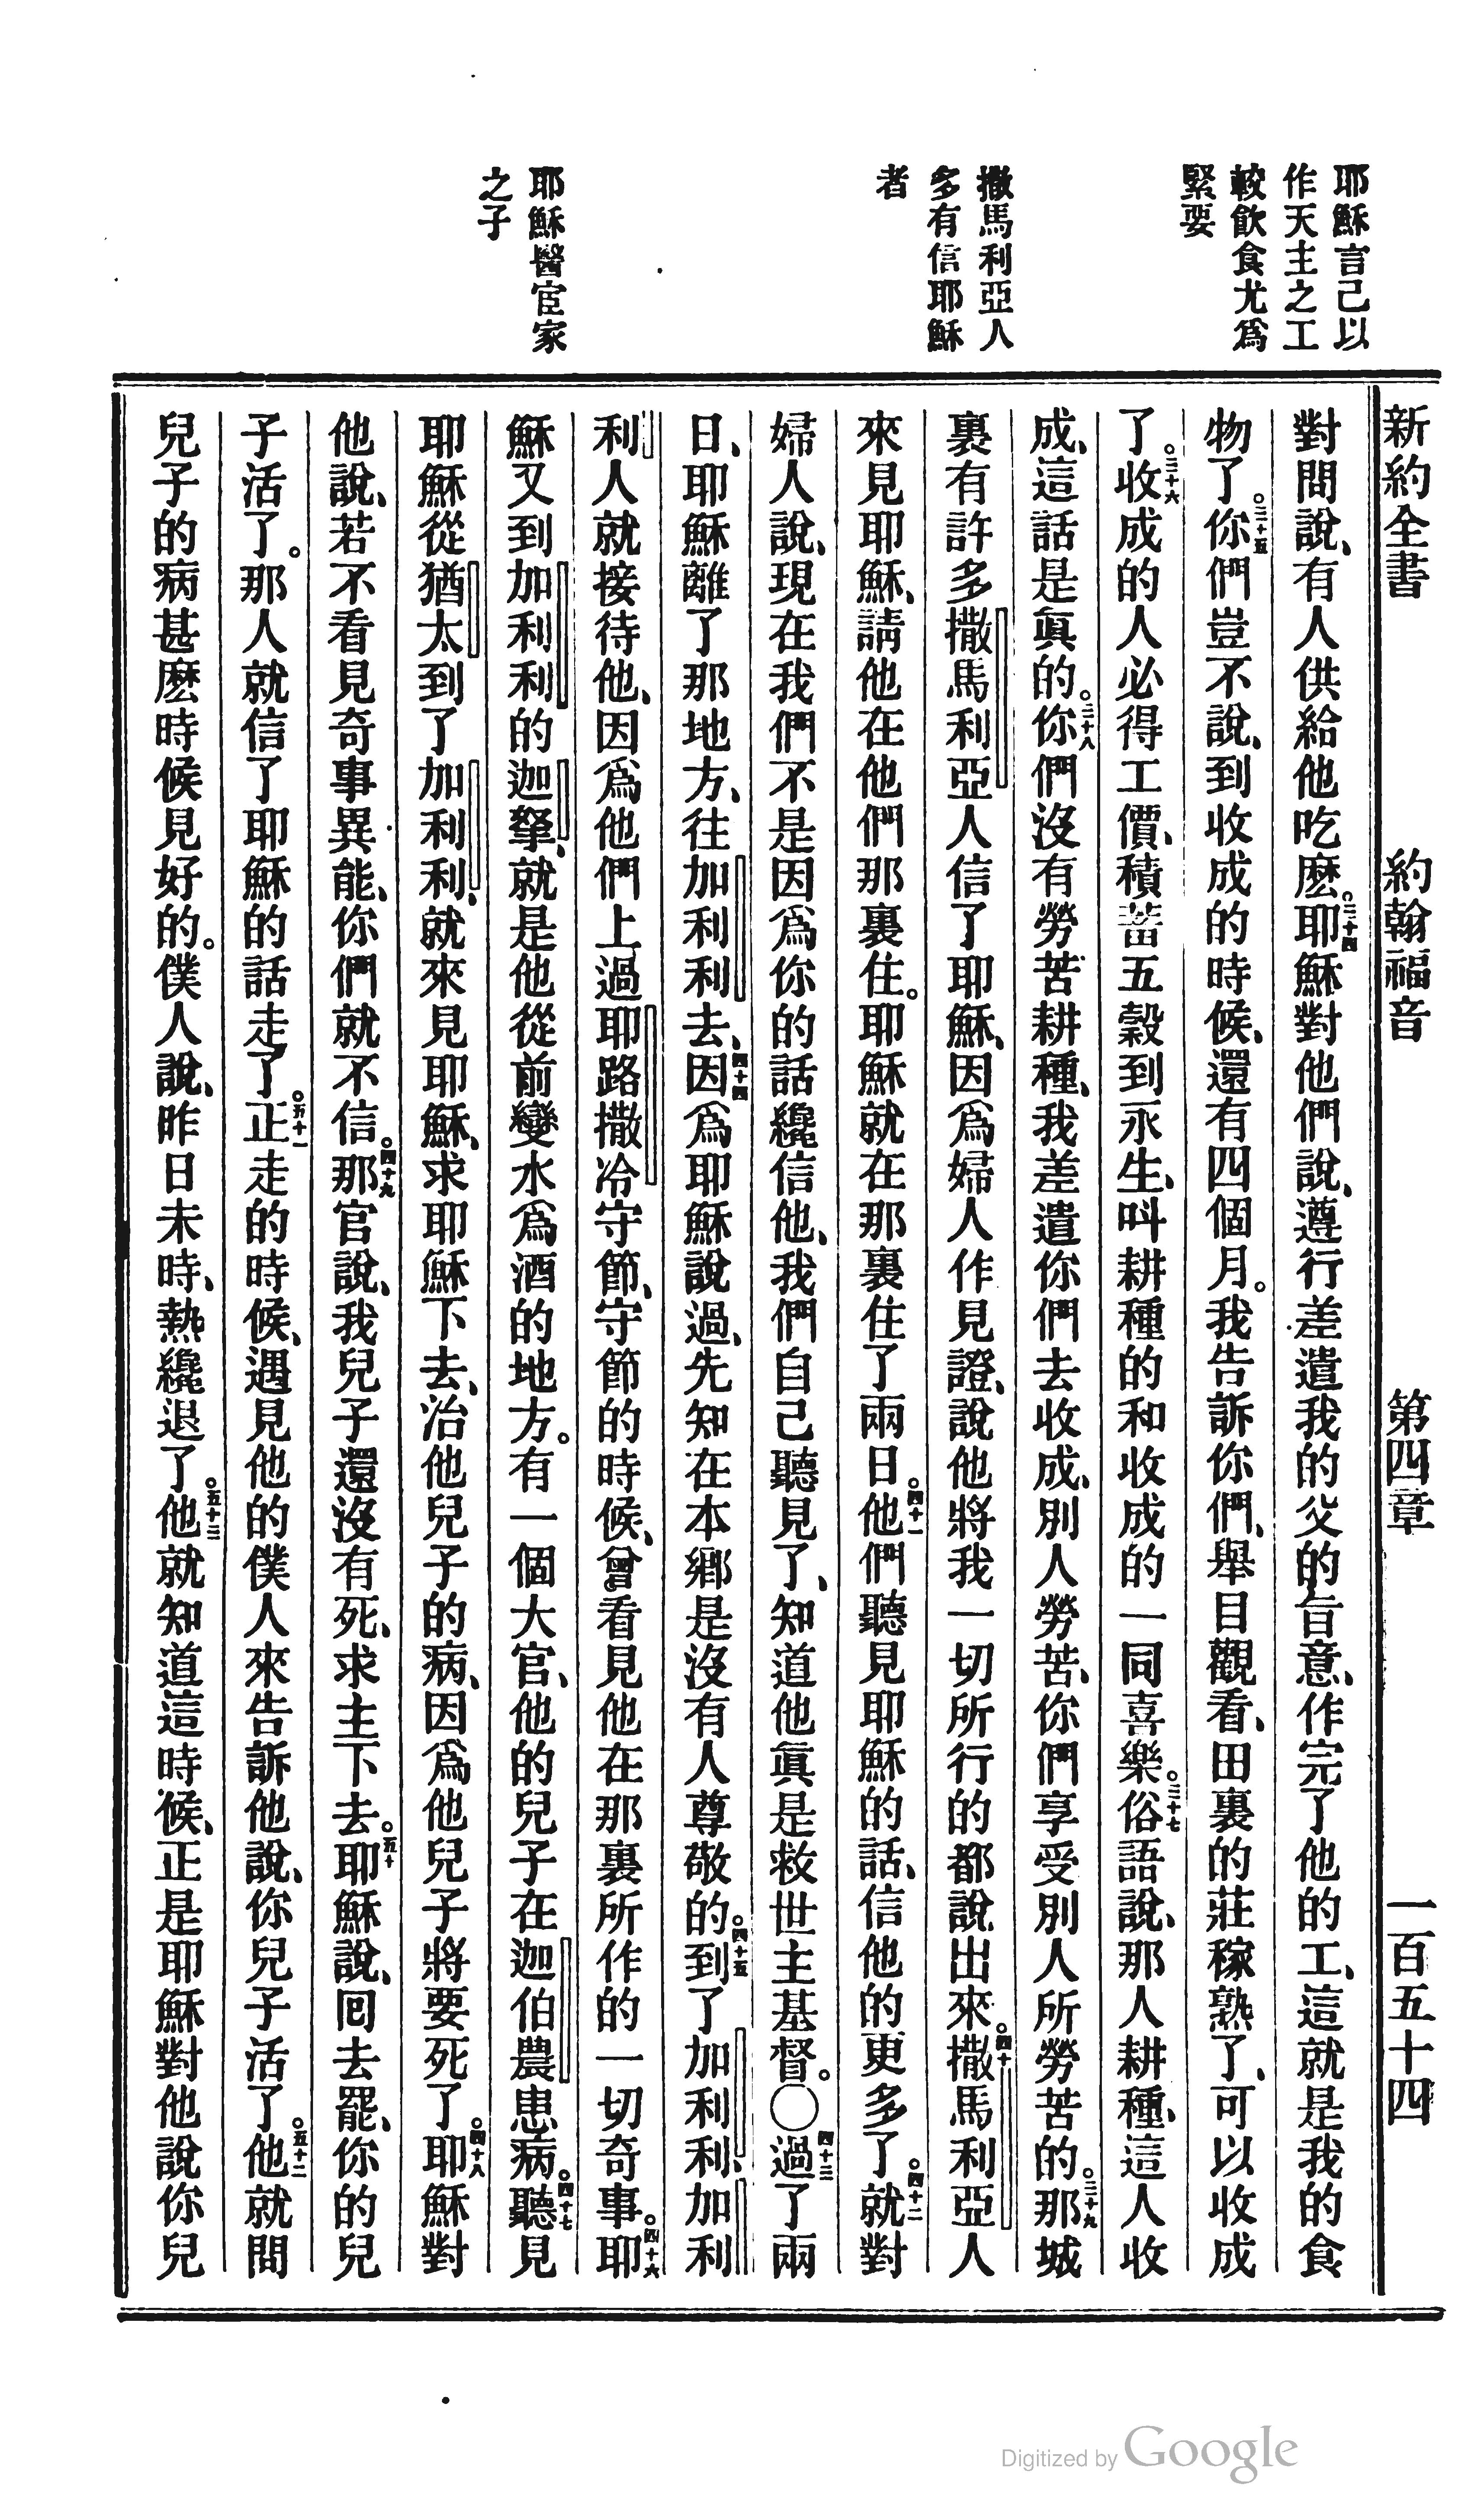 新約全書 約翰福音 第四章 一百五十四
耶穌言己以
作天主之工
較飲食尤爲
緊要
撒馬利亞人
多有信耶穌
者
耶穌醫宦家
之子
對問說、有人供給他吃麽。三十四耶穌對他們說、遵行差遣我的父的旨意、作完了他的工、這就是我的食
物了。三十五你們豈不說、到收成的時候、還有四個月。我告訴你們、舉目觀看、田裏的莊稼熟了、可以收成
了。三十六收成的人必得工價、積蓄五穀到永生、呌耕種的和收成的一同喜樂。三十七俗語說、那人耕種、這人收
成、這話是眞的。三十八你們沒有勞苦耕種、我差遣你們去收成、別人勞苦、你們享受別人所勞苦的。三十九那城
裏有許多撒馬利亞人信了耶穌、因爲婦人作見證、說他將我一切所行的都說出來。四十撒馬利亞人
來見耶穌、請他在他們那裏住。耶穌就在那裏住了兩日。四十一他們聽見耶穌的話、信他的更多了。四十二就對
婦人說、現在我們不是因爲你的話纔信他、我們自己聽見了、知道他眞是救世主基督。〇四十三過了兩
日、耶穌離了那地方、往加利利去、四十四因爲耶穌說過、先知在本鄉是沒有人尊敬的。四十五到了加利利、加利
利人就接待他、因爲他們上過耶路撒冷守節、守節的時候、曾看見他在那裏所作的一切奇事。四十六耶
穌又到加利利的迦拏、就是他從前變水爲酒的地方。有一個大官、他的兒子在迦伯農患病。四十七聽見
耶穌從猶太到了加利利、就來見耶穌、求耶穌下去、治他兒子的病、因爲他兒子將要死了。四十八耶穌對
他說、若不看見奇事異能、你們就不信。四十九那官說、我兒子還沒有死、求主下去。五十耶穌說、囘去罷、你的兒
子活了。那人就信了耶穌的話走了。五十一正走的時候、遇見他的僕人來告訴他說、你兒子活了。五十二他就問
兒子的病甚麽時候見好的。僕人說、昨日未時、熱纔退了。五十三他就知道這時候、正是耶穌對他說你兒
Digitized by Google